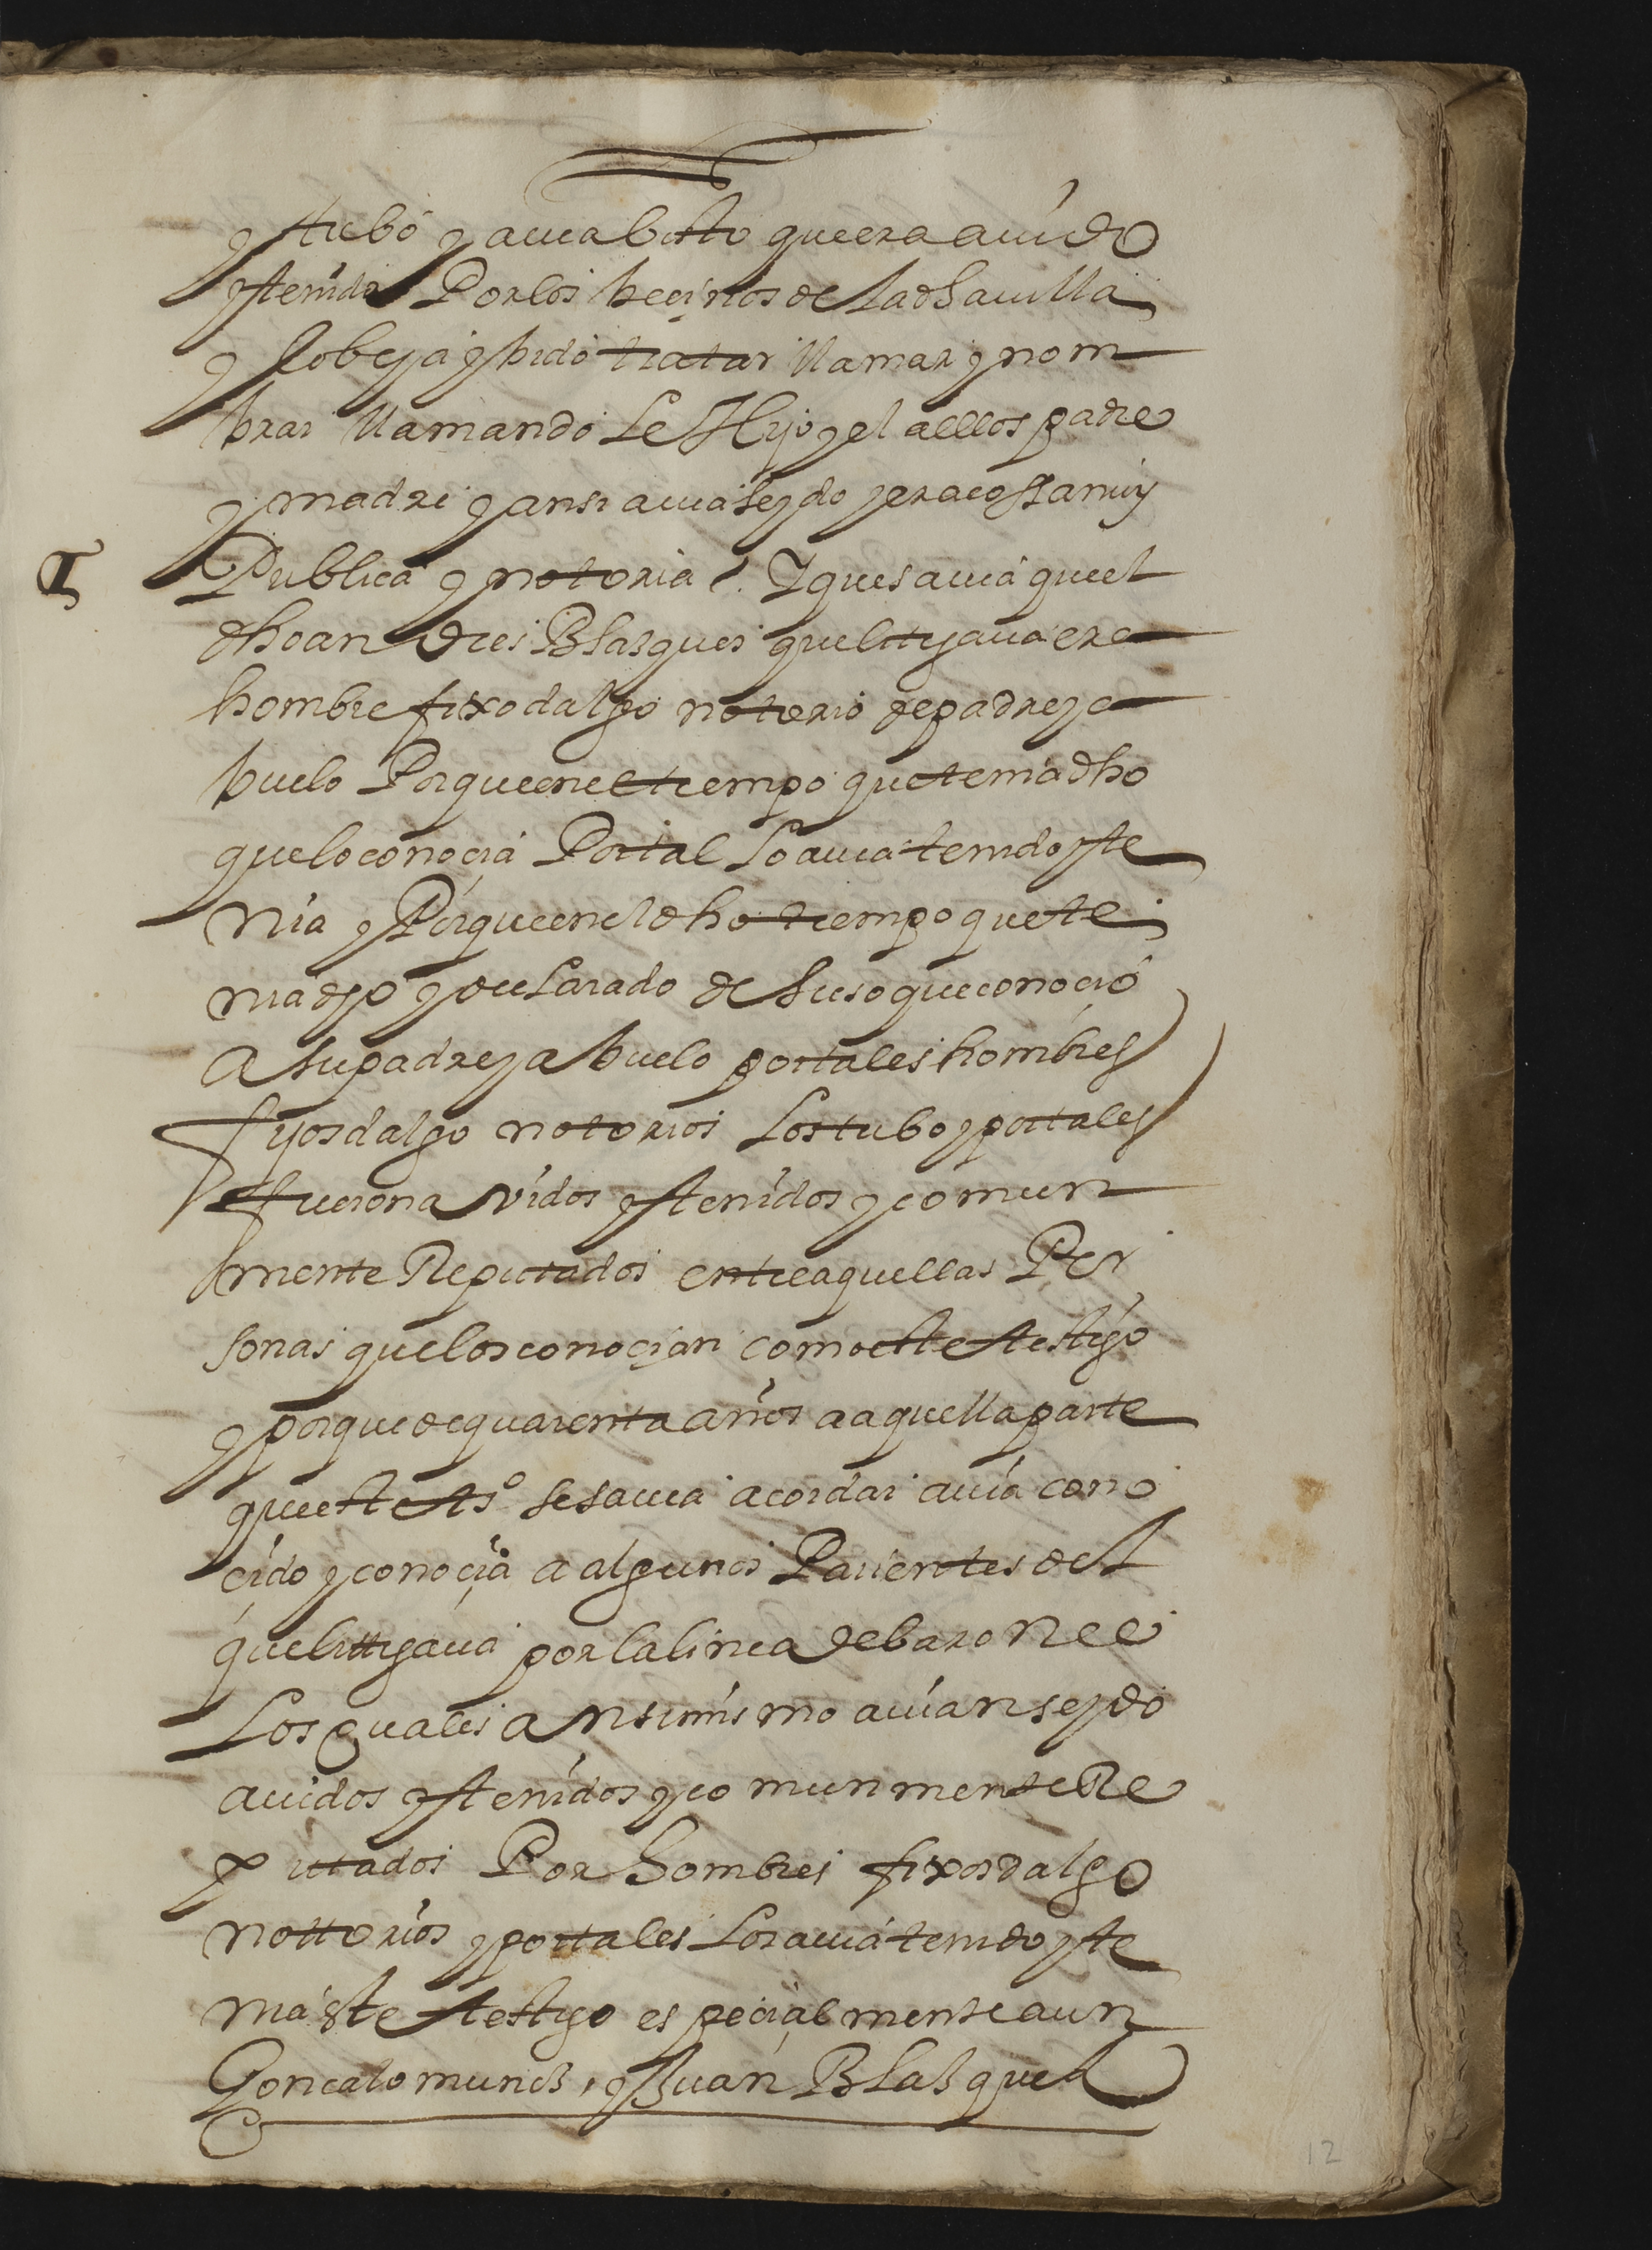 y tubo y auia bisto que era auido
y tenido Por los beçinos de la dha uilla
y lo beya y bido tratar llamar y nom
brar llamando le Hijo y el a ellos padre
y madre y ansi auia seydo y era cossa muy
Publica y notoria . Y que sauia que el
dho an dres Blasques que litigaua era
hombre fixo dalgo notorio de padre y a
buelo Porque en el tiempo que tenia dho
que lo conoçia Por tal lo auia tenido y te
nia y Porque en el dho tiempo que te
nia dho y declarado de suso que conoçio
A su padre y abuelo por tales hombres
fijosdalgo notorios los tubo y por tales
fueron avidos y tenidos y comun
mente Reputados entre aquellas Per
sonas que los conoçian como este testigo
y porque de quarenta años a aquella parte
que este tso se sauia acordar auia cono
cido y conoçia a algunos Parientes del
que litigaua por la linea de baron ee
Los quales Ansimismo auian seydo
auidos y tenidos y comunmente Re
putados Por hombres fixosdalgo
nottorios y por tales los auia tenido y te
nia este testigo especialmente a un
Goncalo munos, y Juan Blasques
12